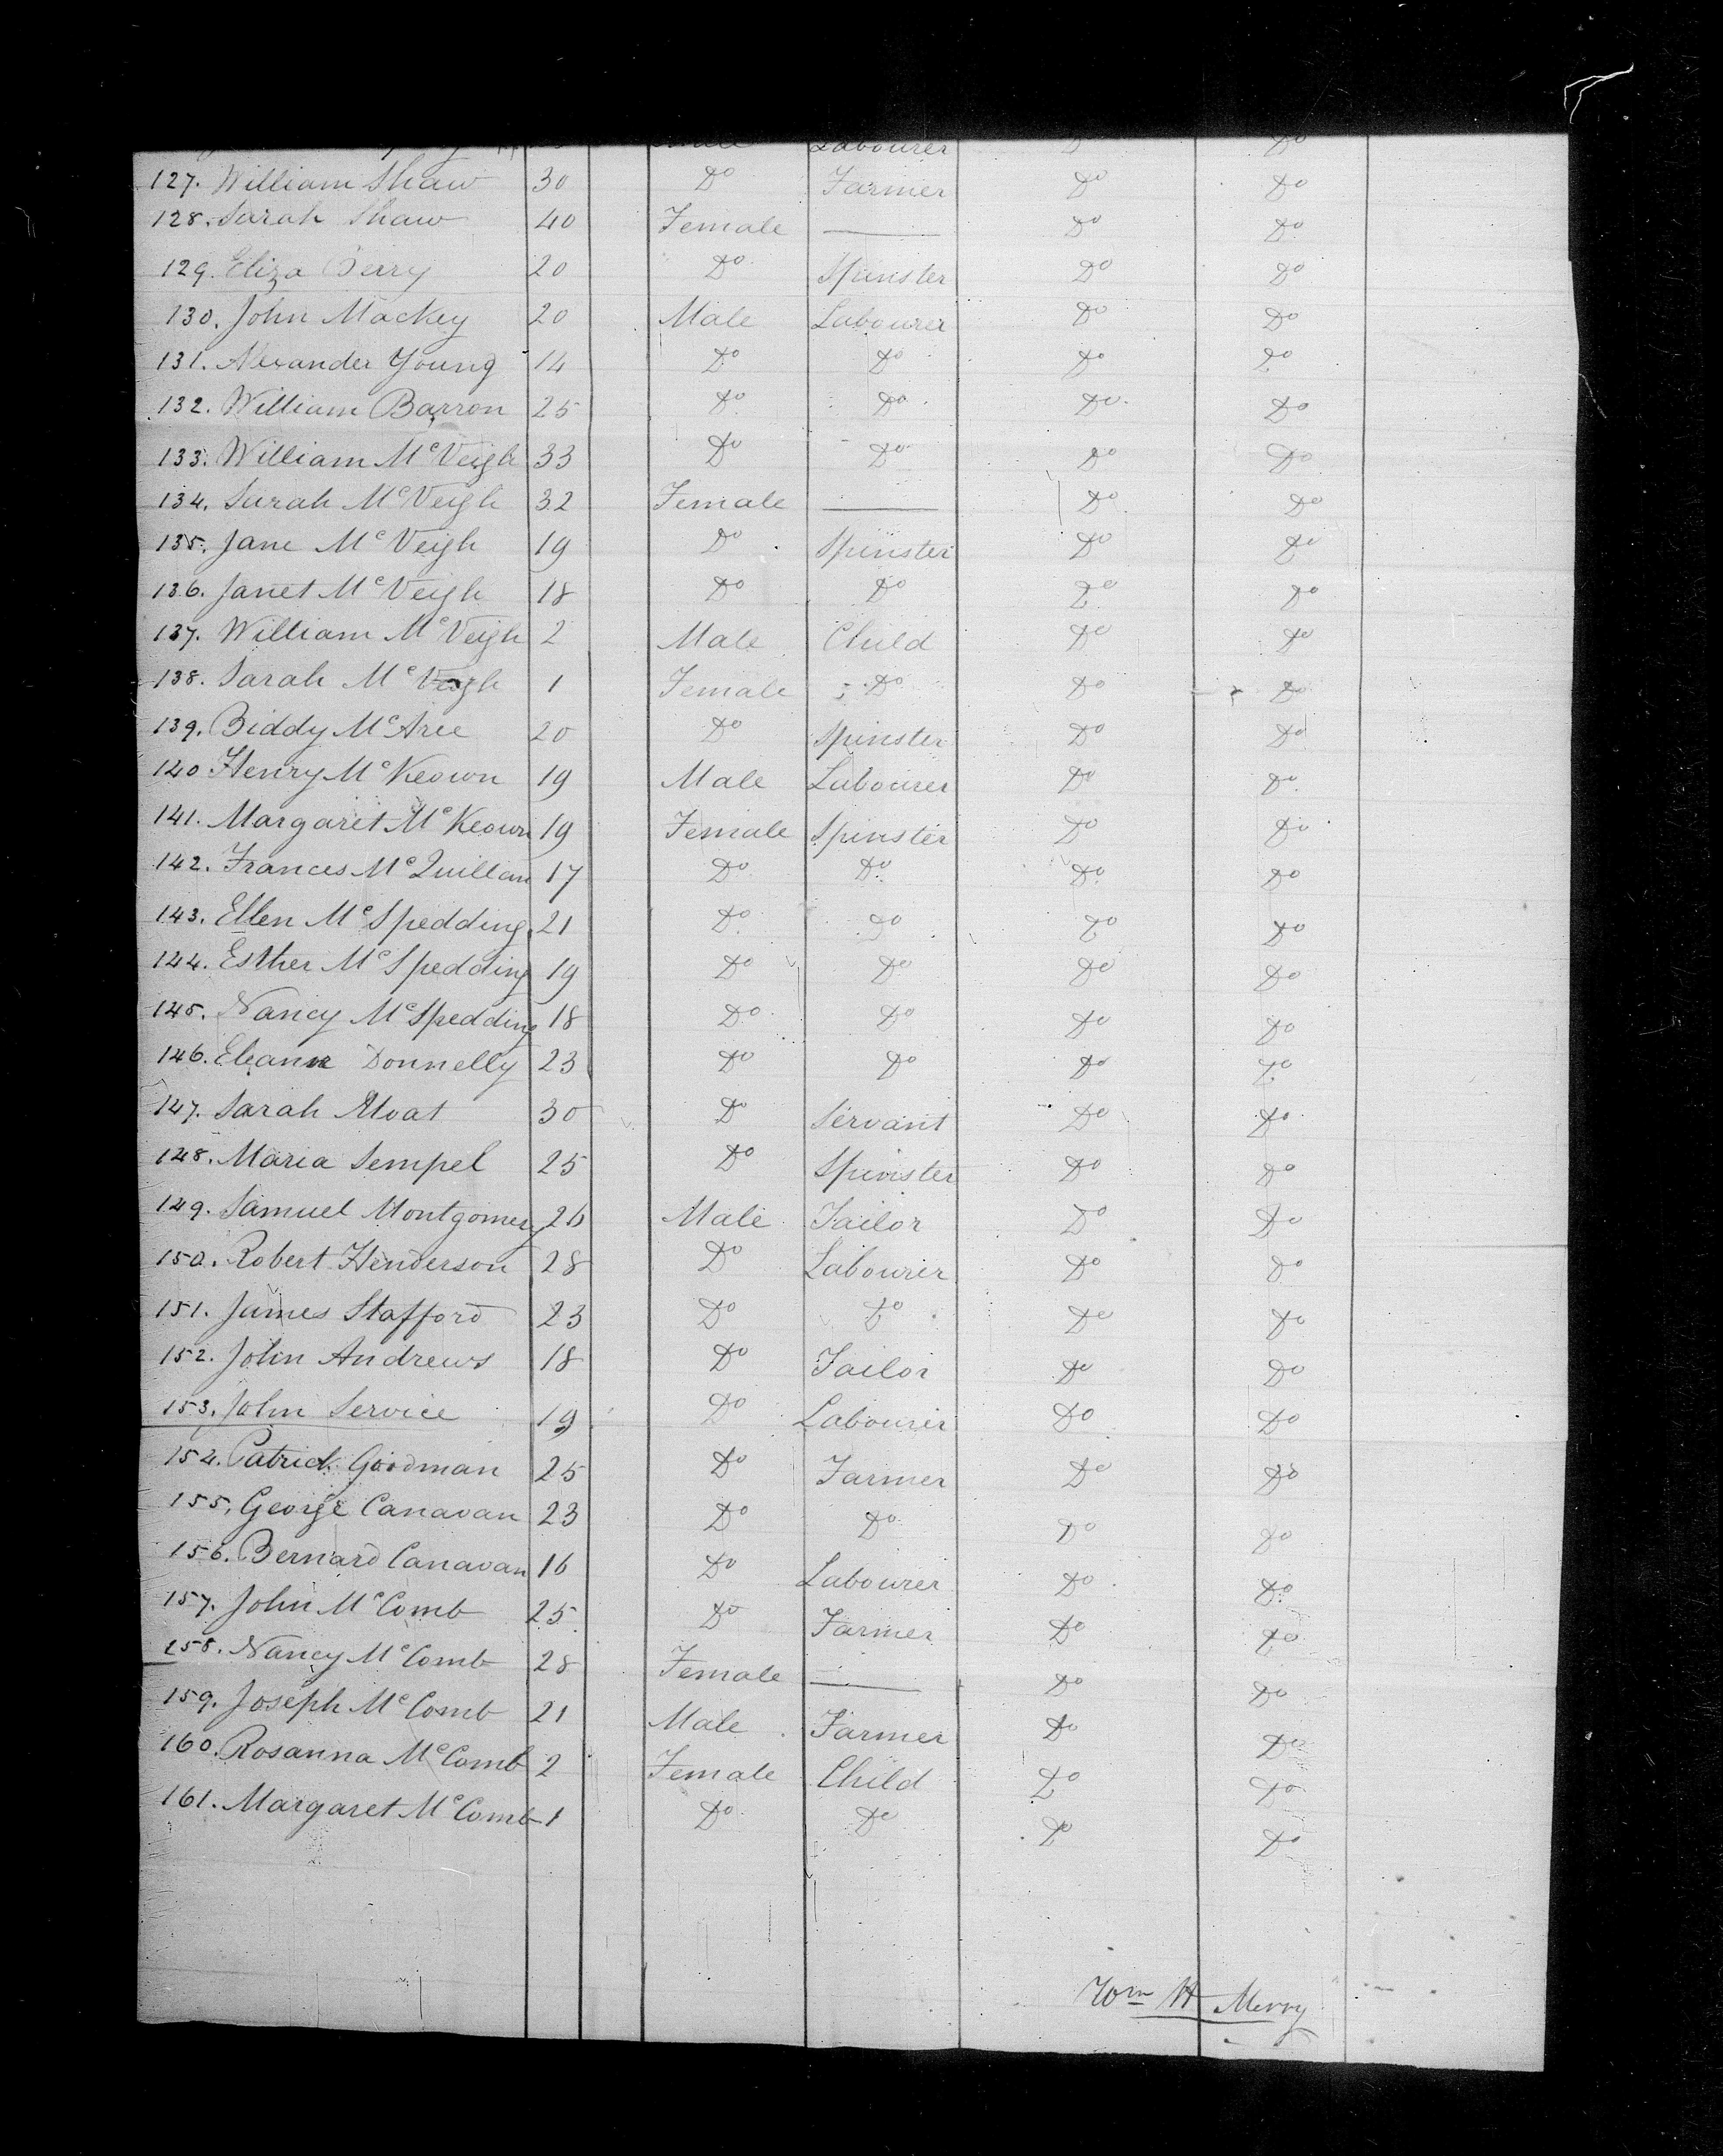 Labourer Do Do
127. William Shaw 30 Do Farmer Do Do
128. Sarah Shaw 40 Female — Do Do
129. Eliza Berry 20 Do Spinster Do Do
130. John Mackey 20 Male Labourer Do Do
131. Alexander Young 14 Do Do Do Do
132. William Barron 25 Do Do Do Do
133. William McVeigh 33 Do Do Do Do
134. Sarah McVeigh 32 Female — Do Do
135. Jane McVeigh 19 Do Spinster Do Do
136. Janet McVeigh 18 Do Do Do Do
137. William McVeigh 2 Male Child Do Do
138. Sarah McVeigh 1 Female Do Do Do
139. Biddy McAree 20 Do Spinster Do Do
140 Henry McKeown 19 Male Labourer Do Do
141. Margaret McKeown 19 Female Spinster Do Do
142. Frances McQuillan 17 Do Do Do Do
143. Ellen McSpedding 21 Do Do Do Do
144. Esther McSpedding 19 Do Do Do Do
145. Nancy McSpedding 18 Do Do Do Do
146. Eleanr Donnelly 23 Do Do Do Do
147. Sarah Moat 30 Do Servant Do Do
148. Maria Sempel 25 Do Spinister Do Do
149. Samuel Montgomery 26 Male Tailor Do Do
150. Robert Henderson 28 Do Labourer Do Do
151. James Stafford 23 Do Do Do Do
152. John Andrews 18 Do Tailor Do Do
153. John Service 19 Do Labourer Do Do
154. Patrick Goodman 25 Do Farmer Do Do
155. George Canavan 23 Do Do Do Do
156. Bernard Canavan 16 Do Labourer Do Do
157. John McComb 25 Do Farmer Do Do
158. Nancy McComb 28 Female — Do Do
159. Joseph McComb 21 Male Farmer Do Do
160. Rosanna McComb 2 Female Child Do Do
161. Margaret McComb 1 Do Do Do Do
Wm H Merry